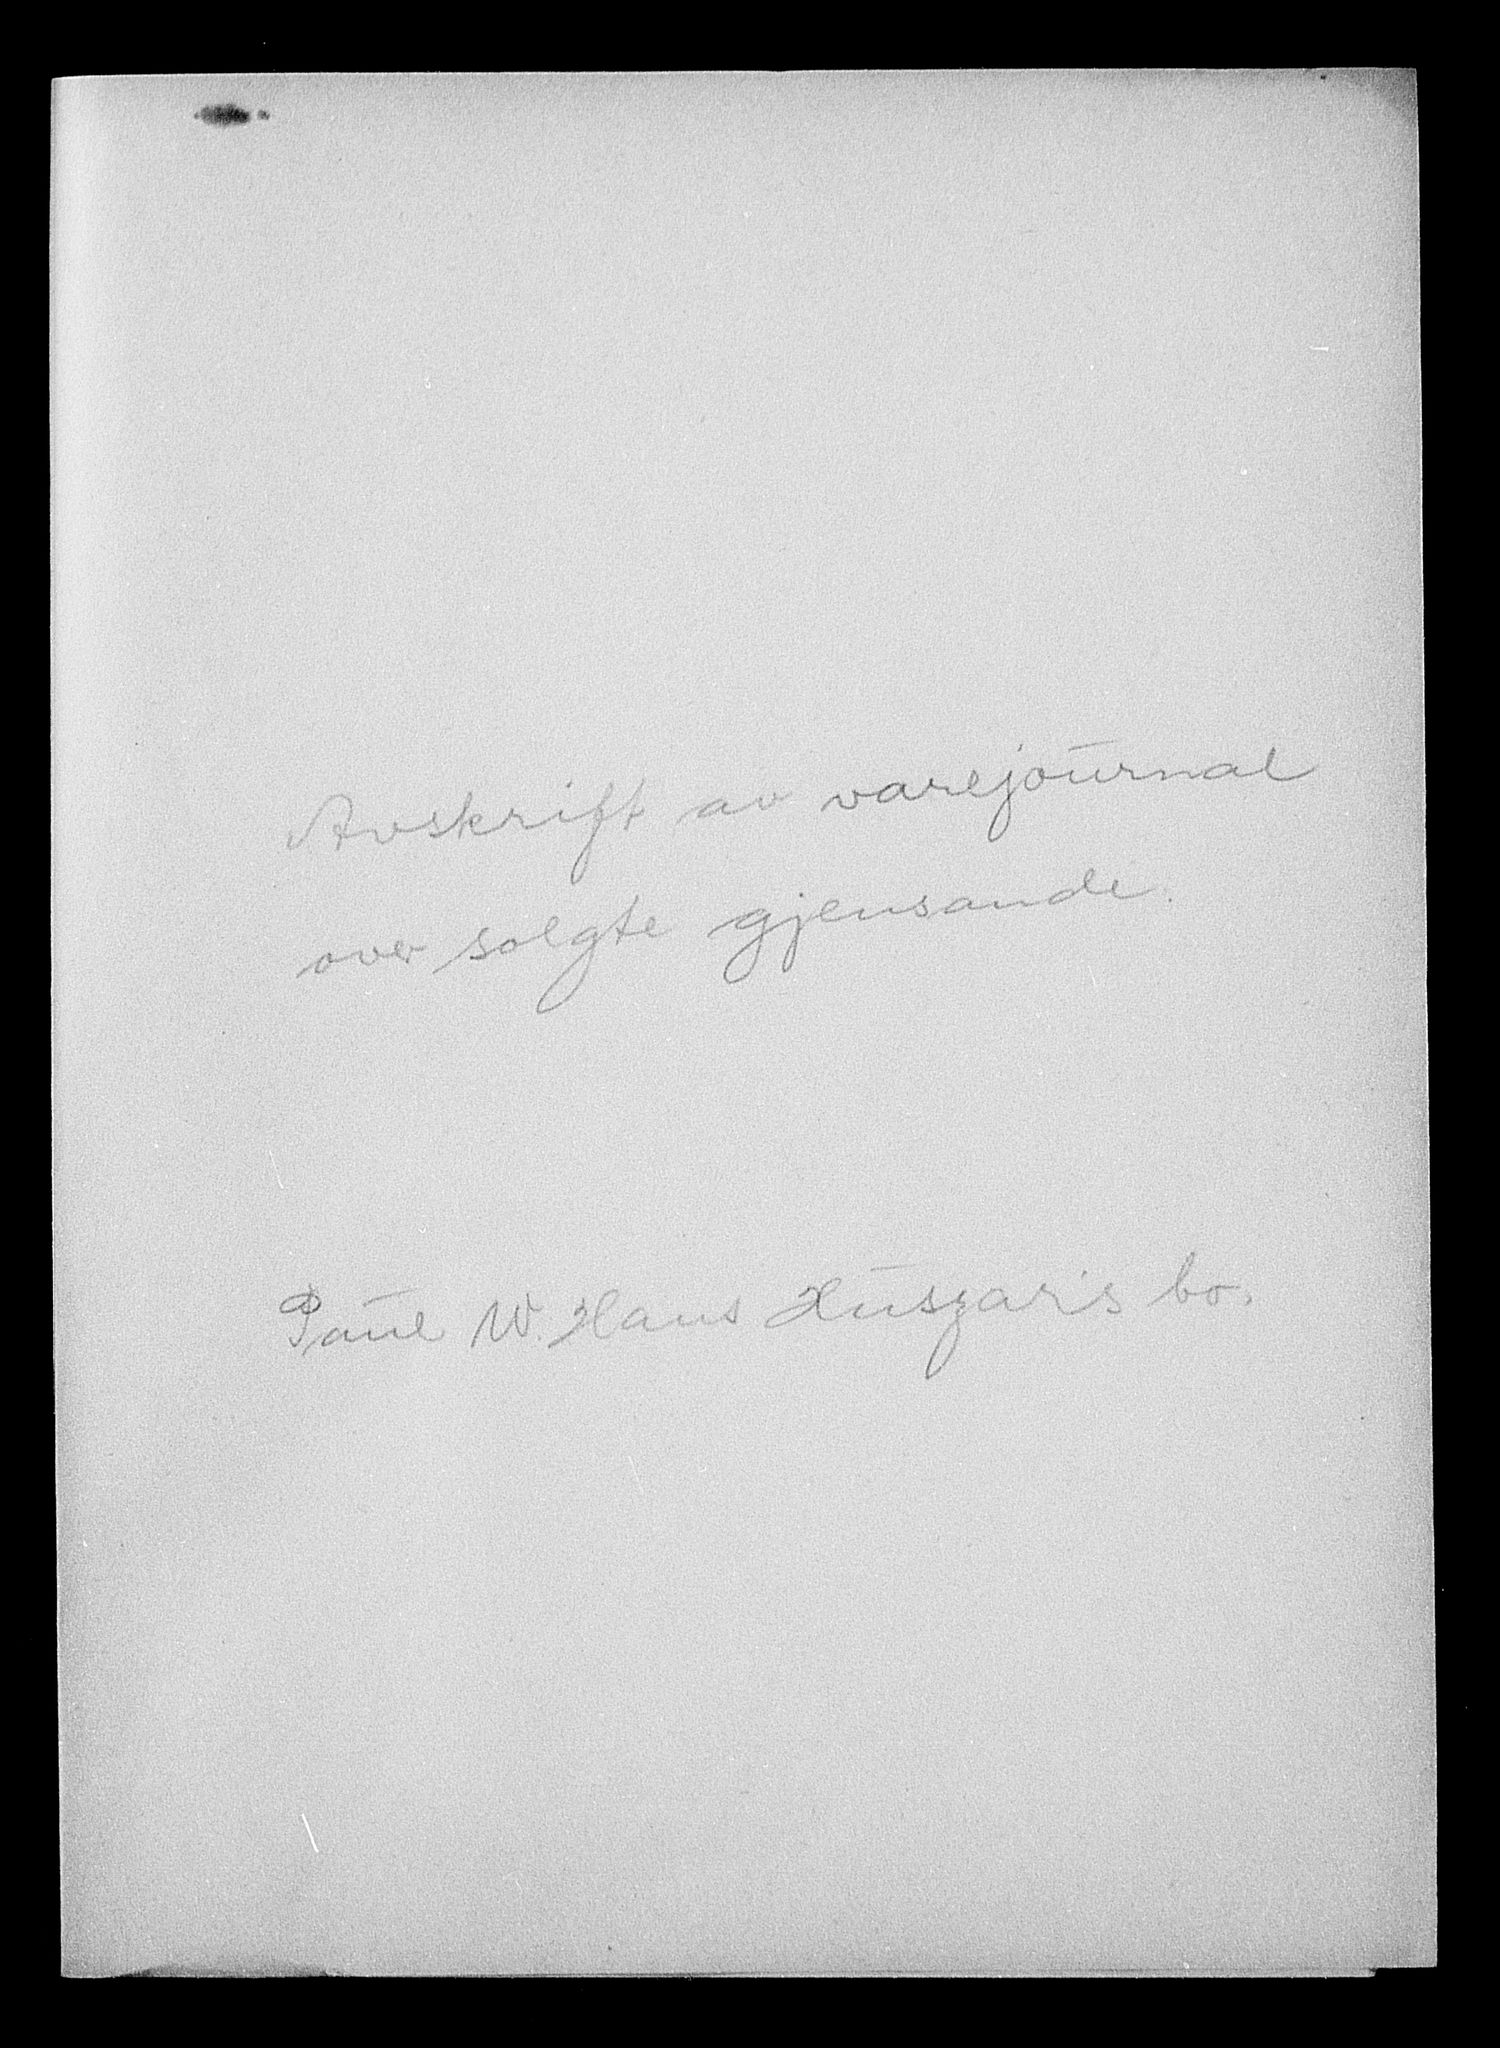 Avskrift av varejournal
over solgte gjensande.
Paul W. Hans Huszar's bo.